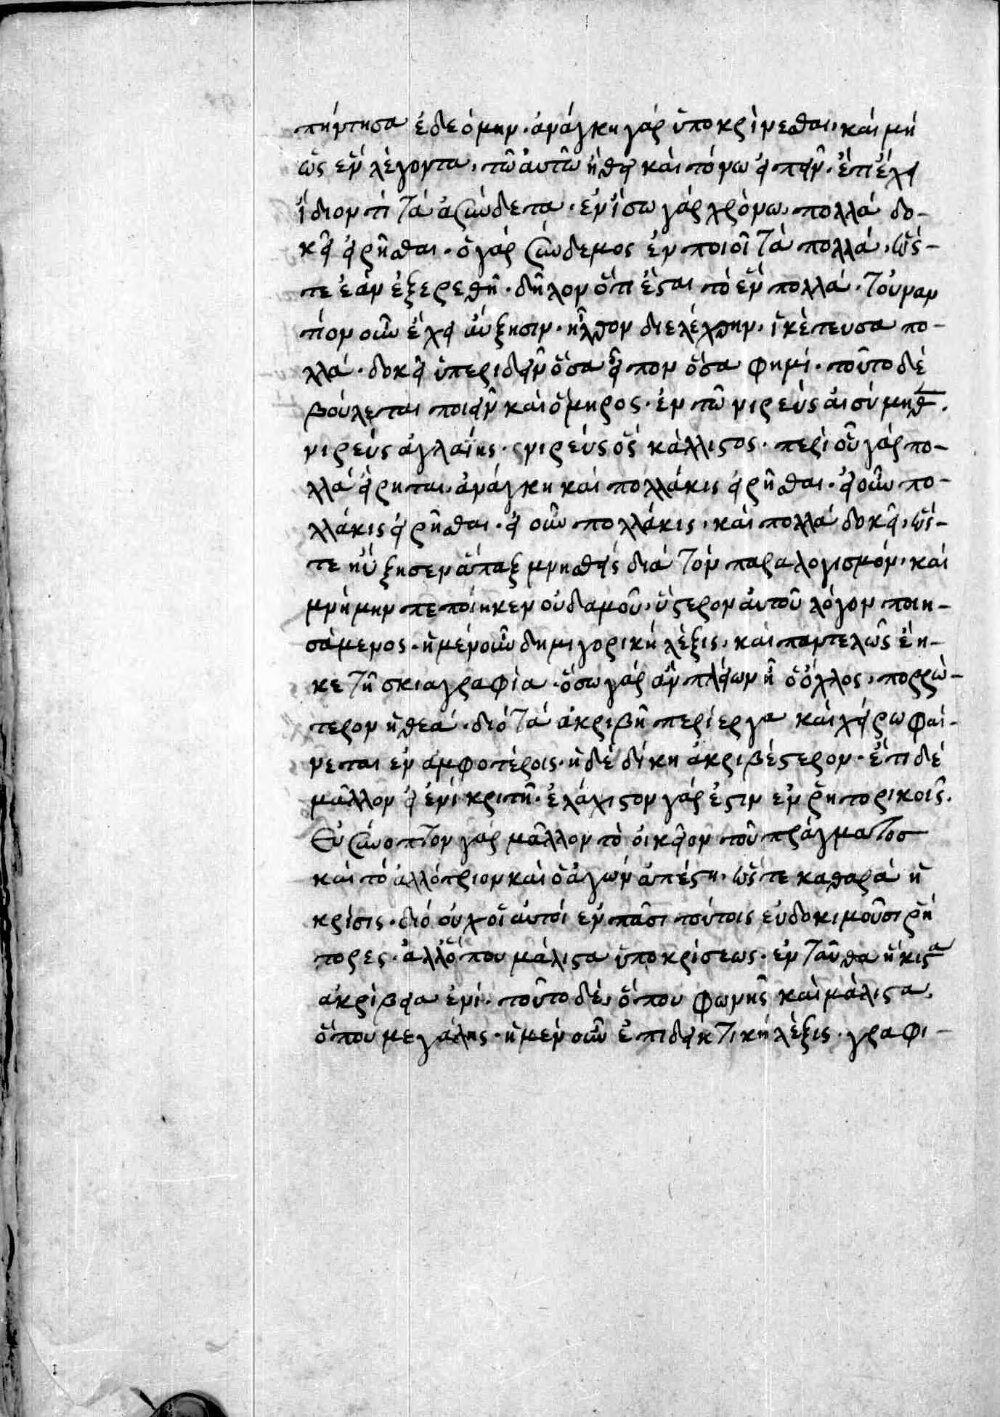 πήντησα ἐδεόμην· ἀνάγκη γὰρ ὑποκρίνεσθαι, καὶ μὴ
ὡς ἓν λέγοντα, τῶ αὐτῶ ἤθει καὶ τόνω εἰπεῖν· ἔτι ἔχει
ἴδιόν τι τὰ ἀσύνδετα· ἐν ἴσω γὰρ χρόνω πολλὰ δο-
κεῖ εἰρῆσθαι· ὁ γὰρ σύνδεμος ἓν ποιοῖ τὰ πολλά, ὥς-
τε ἐὰν ἐξερεθῆ· δῆλον ὅτι ἔσται τὸ ἓν πολλά· τοὐναν
τίον οὖν ἔχει αὔξησιν· ἦλθον διελέχθην· ἱκέτευσα πο-
λλά· δοκεῖ ὑπεριδεῖν ὅσα εἶπον ὅσα φημί· τοῦτο δὲ
βούλεται ποιεῖν καὶ ὅμηρος· ἐν τῶ νιρεὺς αἰσύμηθ.
νιρεὺς ἀγλαΐης· νιρεὺς ὃς κάλλιστος· περὶ οὗ γὰρ πο-
λλὰ εἴρηται, ἀνάγκη καὶ πολλάκις εἰρῆσθαι· εἰ οὖν πο-
λλάκις εἰρῆσθαι· εἰ οὖν πολλάκις, καὶ πολλὰ δοκεῖ, ὥς-
τε ηὔξησεν ἅπαξ μνησθεὶς διὰ τὸν παραλογισμόν· καὶ
μνήμην πεποίηκεν οὐδαμοῦ, ὕστερον αὐτοῦ λόγον ποιη-
σάμενος· ἡ μὲν οὖν δημιγορικὴ λέξις, καὶ παντελῶς ἔη-
κε τῆ σκιαγραφία· ὅσω γὰρ ἂν πλείων ἦ ὁ ὄχλος, πορρώ-
τερον ἡ θέα· διὸ τὰ ἀκριβῆ περίεργα καὶ χείρω φαί-
νεται ἐν ἀμφοτέροις· ἡ δὲ δίκη ἀκριβέστερον· ἔτι δὲ
μᾶλλον εἰ ἑνὶ κριτῆ· ἐλάχιστον γάρ ἐστιν ἐν ῥητορικοῖς.
Εὐσύνοπτον γὰρ μᾶλλον τὸ οἰκεῖον τοῦ πράγματος
καὶ τὸ ἀλλότριον καὶ ὁ ἀγὼν ἄπεστι· ὥστε καθαρὰ ἡ
κρίσις· διὸ οὐχ οἱ αὐτοὶ ἐν πᾶσι τούτοις εὐδοκιμοῦσι ῥή
τορες· ἀλλ' ὅπου μάλιστα ὑποκρίσεως· ἐνταῦθα ἥκιστα
ἀκρίβεια ἔνι· τοῦτο δὲ, ὅπου φωνῆς καὶ μάλιστα,
ὅπου μεγάλης· ἡ μὲν οὖν ἐπιδεικτικὴ λέξις· γραφι-